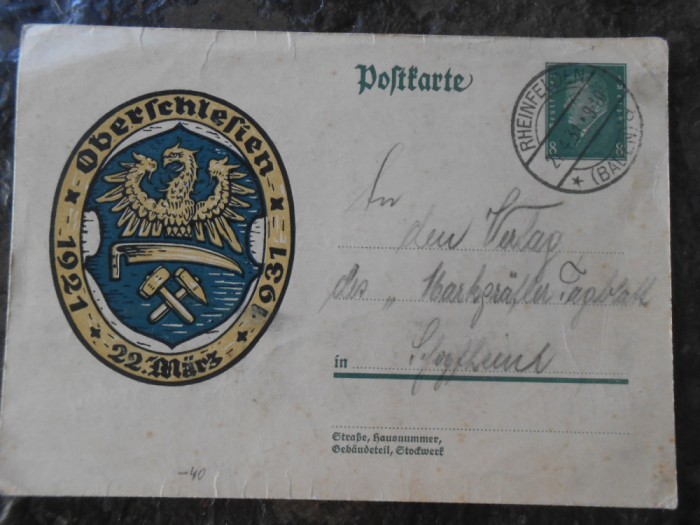 Postkarte
Oberschlesien
1921
1931
22. März
RHEINFELDEN
(BADEN)
8 8
An
den Verlag
des „Markgräfler Tagblatt
in Schopfheim
Straße, Hausnummer,
Gebäudeteil, Stockwerk
-40